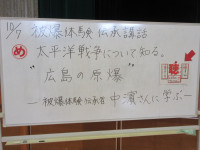 10/7 被爆体験伝承講話
め 太平洋戦争について知る。
"広島の原爆"
―被爆体験伝承者 中濱さんに学ぶ―